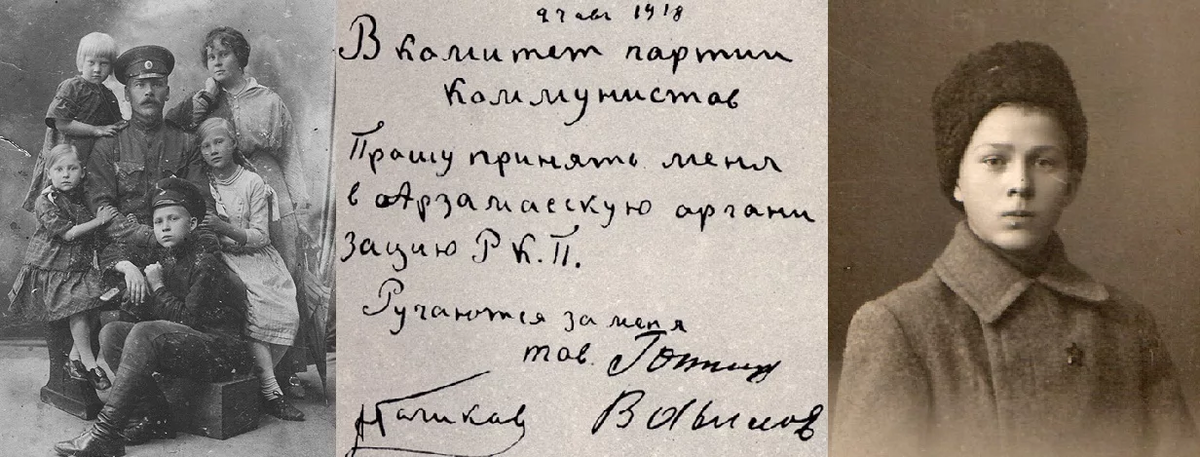 27 авг 1918
В комитет партии
коммунистов
Прошу принять меня
в Арзамасскую органи
зацию Р К.П.
Ручаются за меня
тов.
Голиков Вавилов